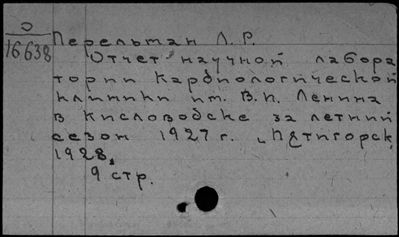 О
16638
Перельман Л. Р.
Отчет научной лабора
тории Кардиологической
клиники им. В.И. Ленина
в Кисловодске за летний
сезон 1927 г. Пятигорск,
1928.
9 стр.